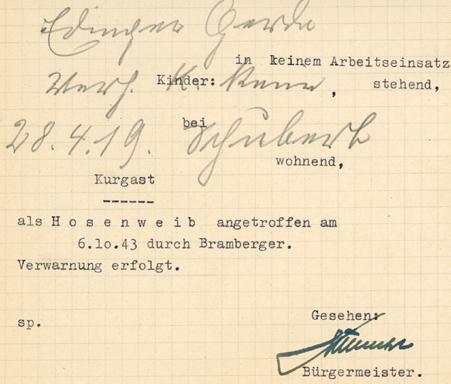 Edinger Gerda
in keinem Arbeitseinsatz
Verh. Kinder: keine, stehend,
28.4.19. bei Schubert
wohnend,
Kurgast
------
als H o s e n w e i b angetroffen am
6.1o.43 durch Bramberger.
Verwarnung erfolgt.
sp.
Gesehen:
Bürgermeister.